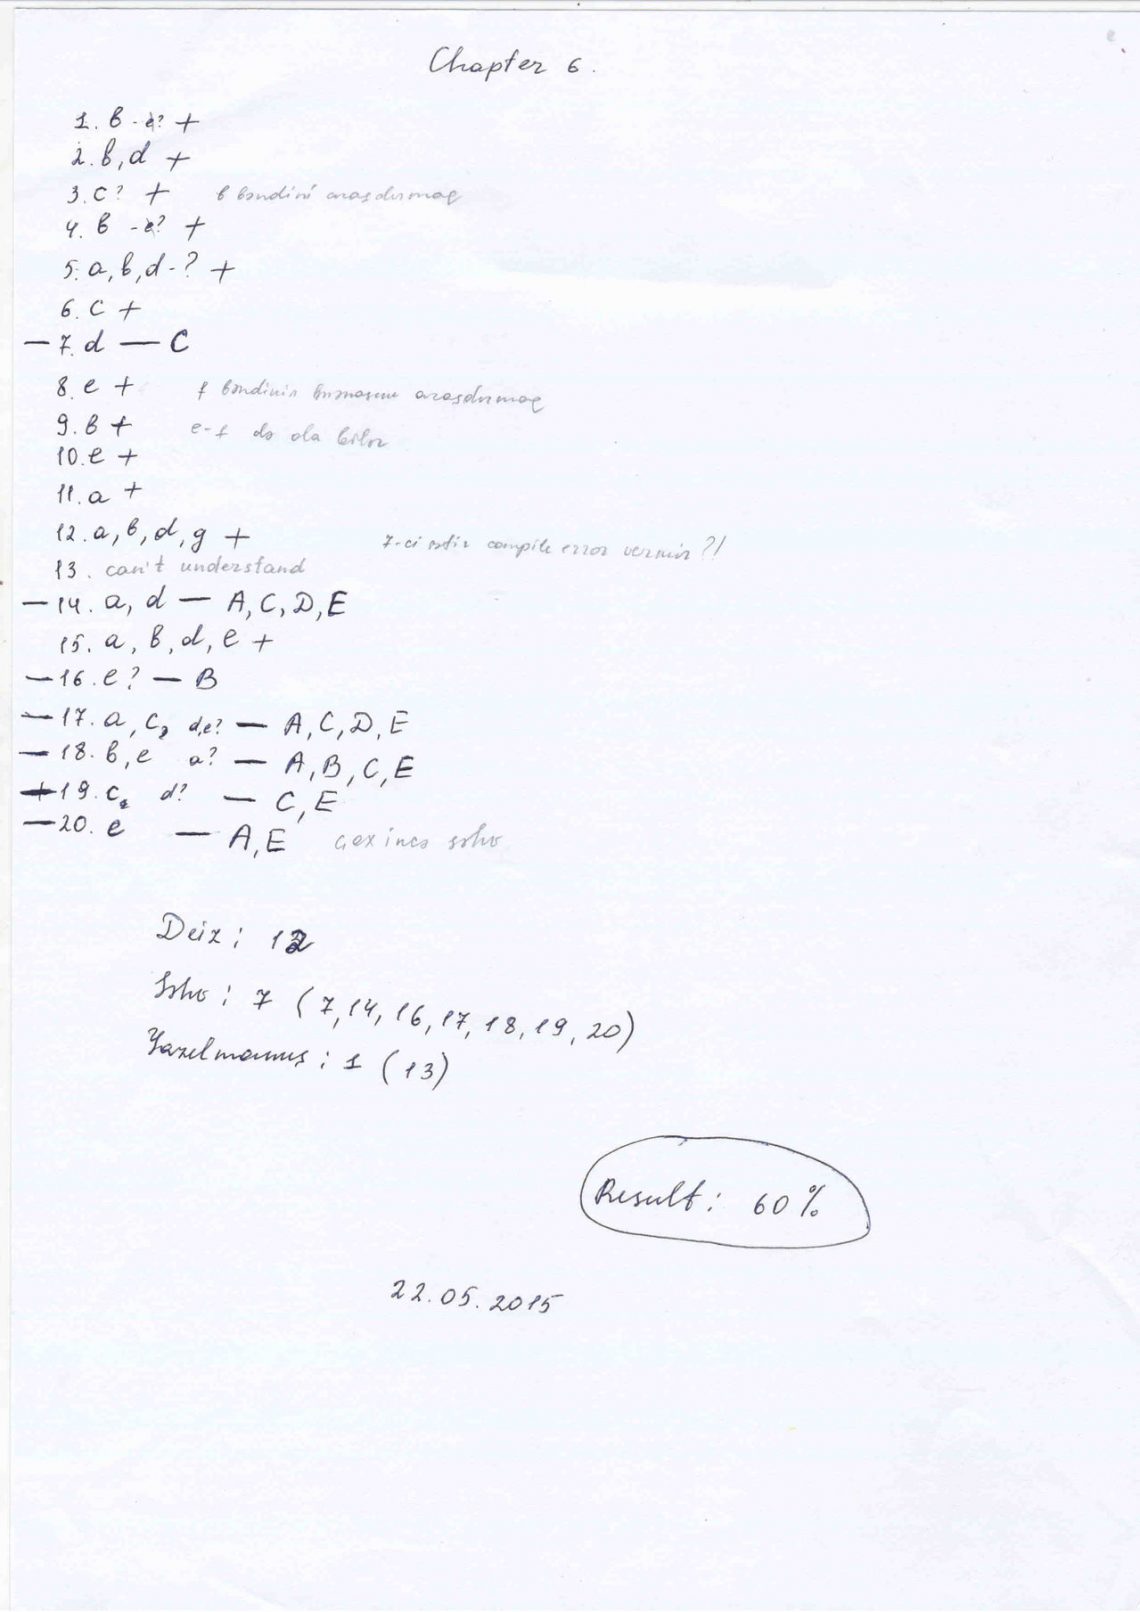 Chapter 6.
1. b - e? +
2. b, d +
3. c? + b bəndini araşdırmaq
4. b - e? +
5. a, b, d - ? +
6. c +
— 7. d — C
8. e + f bəndinin araşdırmaq
9. b + e-f də ola bilər
10. e +
11. a +
12. a, b, d, g + 7-ci sətir compile error vermir?!
13. can't understand
— 14. a, d — A, C, D, E
15. a, b, d, e +
— 16. e? — B
— 17. a, c, d,e? — A, C, D, E
— 18. b, e a? — A, B, C, E
19. c, d? — C, E
— 20. e — A, E səhv
Düz : 12
Səhv : 7 (7, 14, 16, 17, 18, 19, 20)
Yazılmamış : 1 (13)
Result : 60 %
22.05.2015